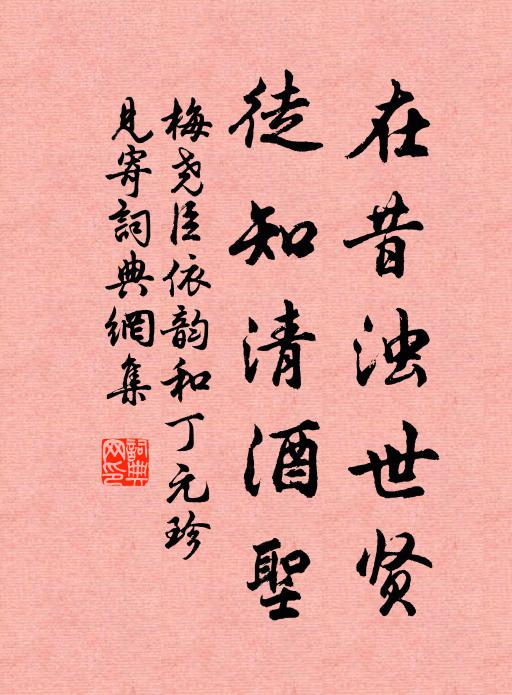 在昔浊世贤
徒知清酒聖
梅尧臣依韵和丁元珍
見寄詞典網集
詞典网印